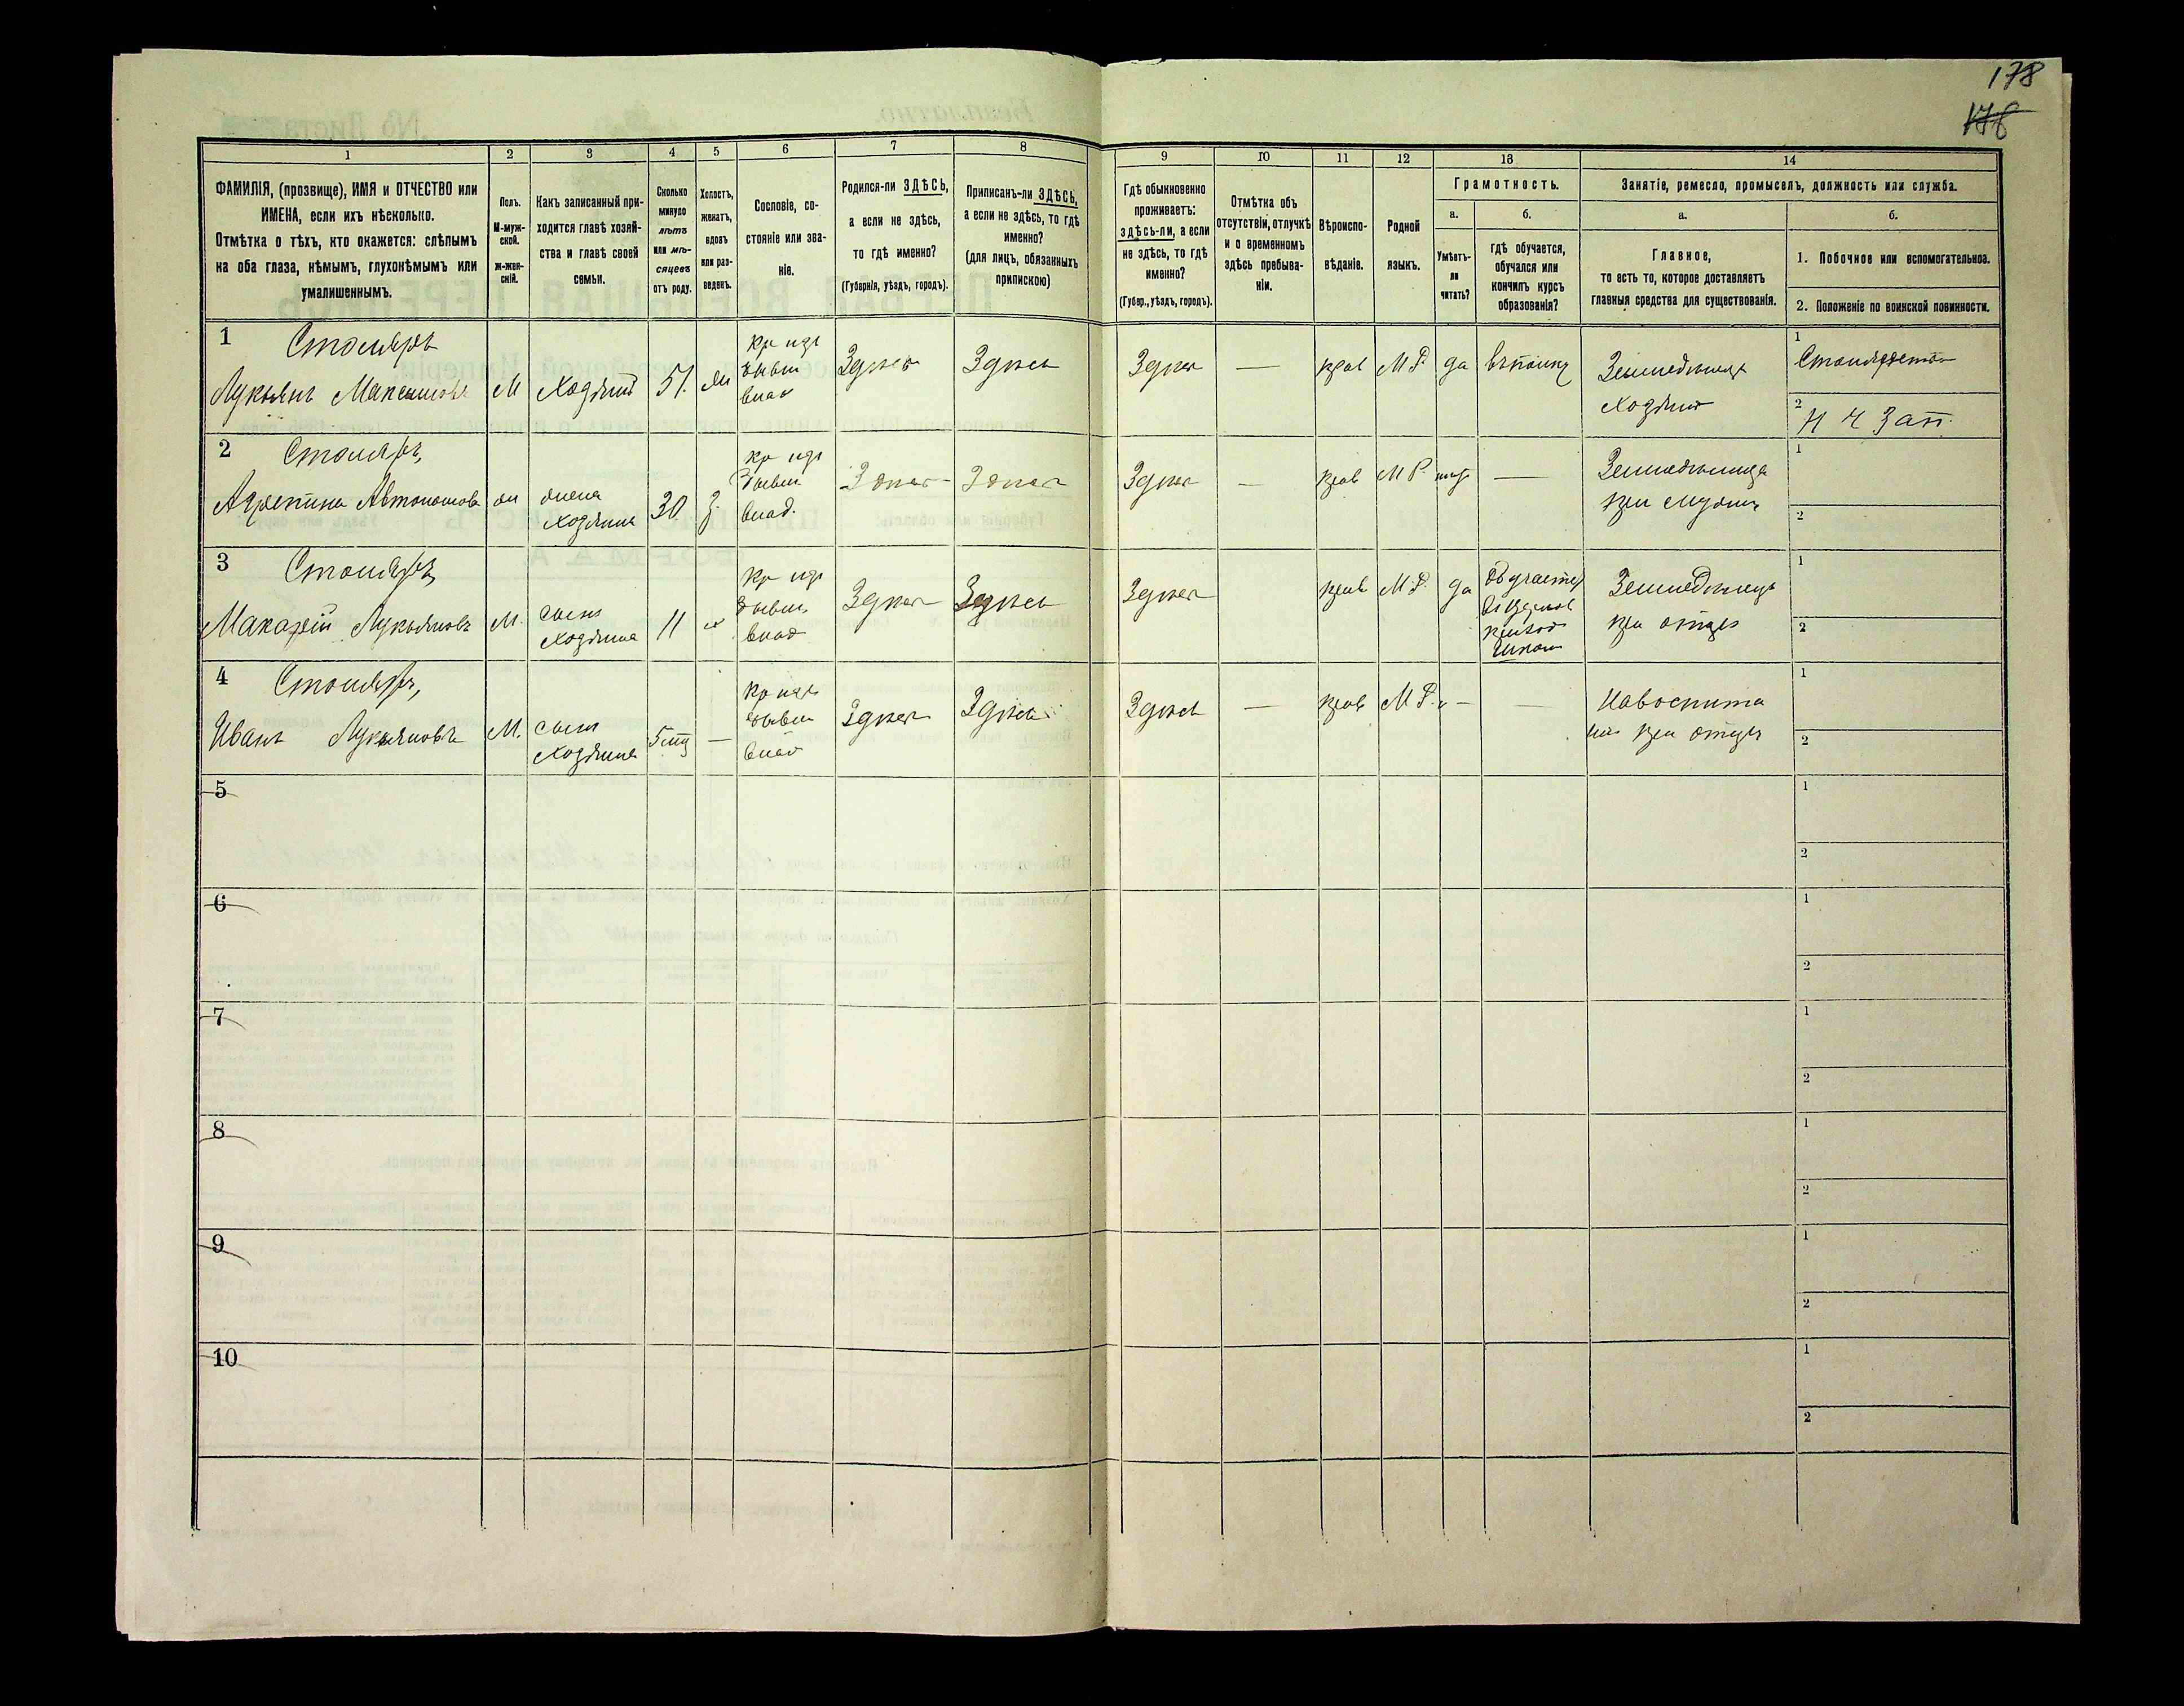 178
178
1
2
3
4
5
6
7
8
9
10
11
12
13
14
ФАМИЛІЯ, (прозвище), ИМЯ и ОТЧЕСТВО или
ИМЕНА, если ихъ нѣсколько.
Отмѣтка о тѣхъ, кто окажется: слѣпымъ
на оба глаза, нѣмымъ, глухонѣмымъ или
умалишеннымъ.
Полъ.
М-муж-
ской.
ж-жен-
скій.
Какъ записанный при-
ходится главѣ хозяй-
ства и главѣ своей
семьи.
Сколько
минуло
лѣтъ
или мѣ-
сяцевъ
отъ роду.
Холостъ,
женатъ,
вдовъ
или раз-
веденъ.
Сословіе, со-
стояніе или зва-
ніе.
Родился-ли ЗДѢСЬ,
а если не здѣсь,
то гдѣ именно?
(Губернія, уѣздъ, городъ).
Приписанъ-ли ЗДѢСЬ,
а если не здѣсь, то гдѣ
именно?
(для лицъ, обязанныхъ
припискою)
Гдѣ обыкновенно
проживаетъ:
здѣсь-ли, а если
не здѣсь, то гдѣ
именно?
(Губер., уѣздъ, городъ).
Отмѣтка объ
отсутствіи, отлучкѣ
и о временномъ
здѣсь пребыва-
ніи.
Вѣроиспо-
вѣданіе.
Родной
языкъ.
Грамотность.
а.
Умѣетъ-
ли
читать?
б.
гдѣ обучается,
обучался или
кончилъ курсъ
образованія?
Занятіе, ремесло, промыселъ, должность или служба.
а.
Главное,
то есть то, которое доставляетъ
главныя средства для существованія.
б.
1. Побочное или вспомогательное.
2. Положеніе по воинской повинности.
1
Столяръ
Лукьянъ Максимовъ
М
Хозяинъ
51.
кр изъ
бывш
влад
Здѣсь
Здѣсь
Здѣсь
—
прав
М Р.
да
Земледѣлецъ
хозяинъ
1
2
Н Ч Зап.
2
Столяръ,
Агрепина Автономова
жена
хозяина
30
З.
кр изъ
бывш
влад.
Здѣсь
Здѣсь
Здѣсь
—
прав
М Р.
нѣтъ
—
Земледѣлица
при мужѣ
1
2
3
Столяръ
Макарій Лукьяновъ
М.
сынъ
хозяина
11
кр изъ
бывш
влад
Здѣсь
Здѣсь
Здѣсь
прав
М.Р.
да
Обучается
приход
школ
Земледѣлецъ
при отцѣ
1
2
4
Столяръ,
Иванъ Лукьяновъ
М.
сынъ
хозяина
—
кр изъ
бывш
влад
Здѣсь
Здѣсь
Здѣсь
—
прав
М Р.
—
—
На воспита
ніи при отцѣ
1
2
5
1
2
6
1
2
7
1
2
8
1
2
9
1
2
10
1
2